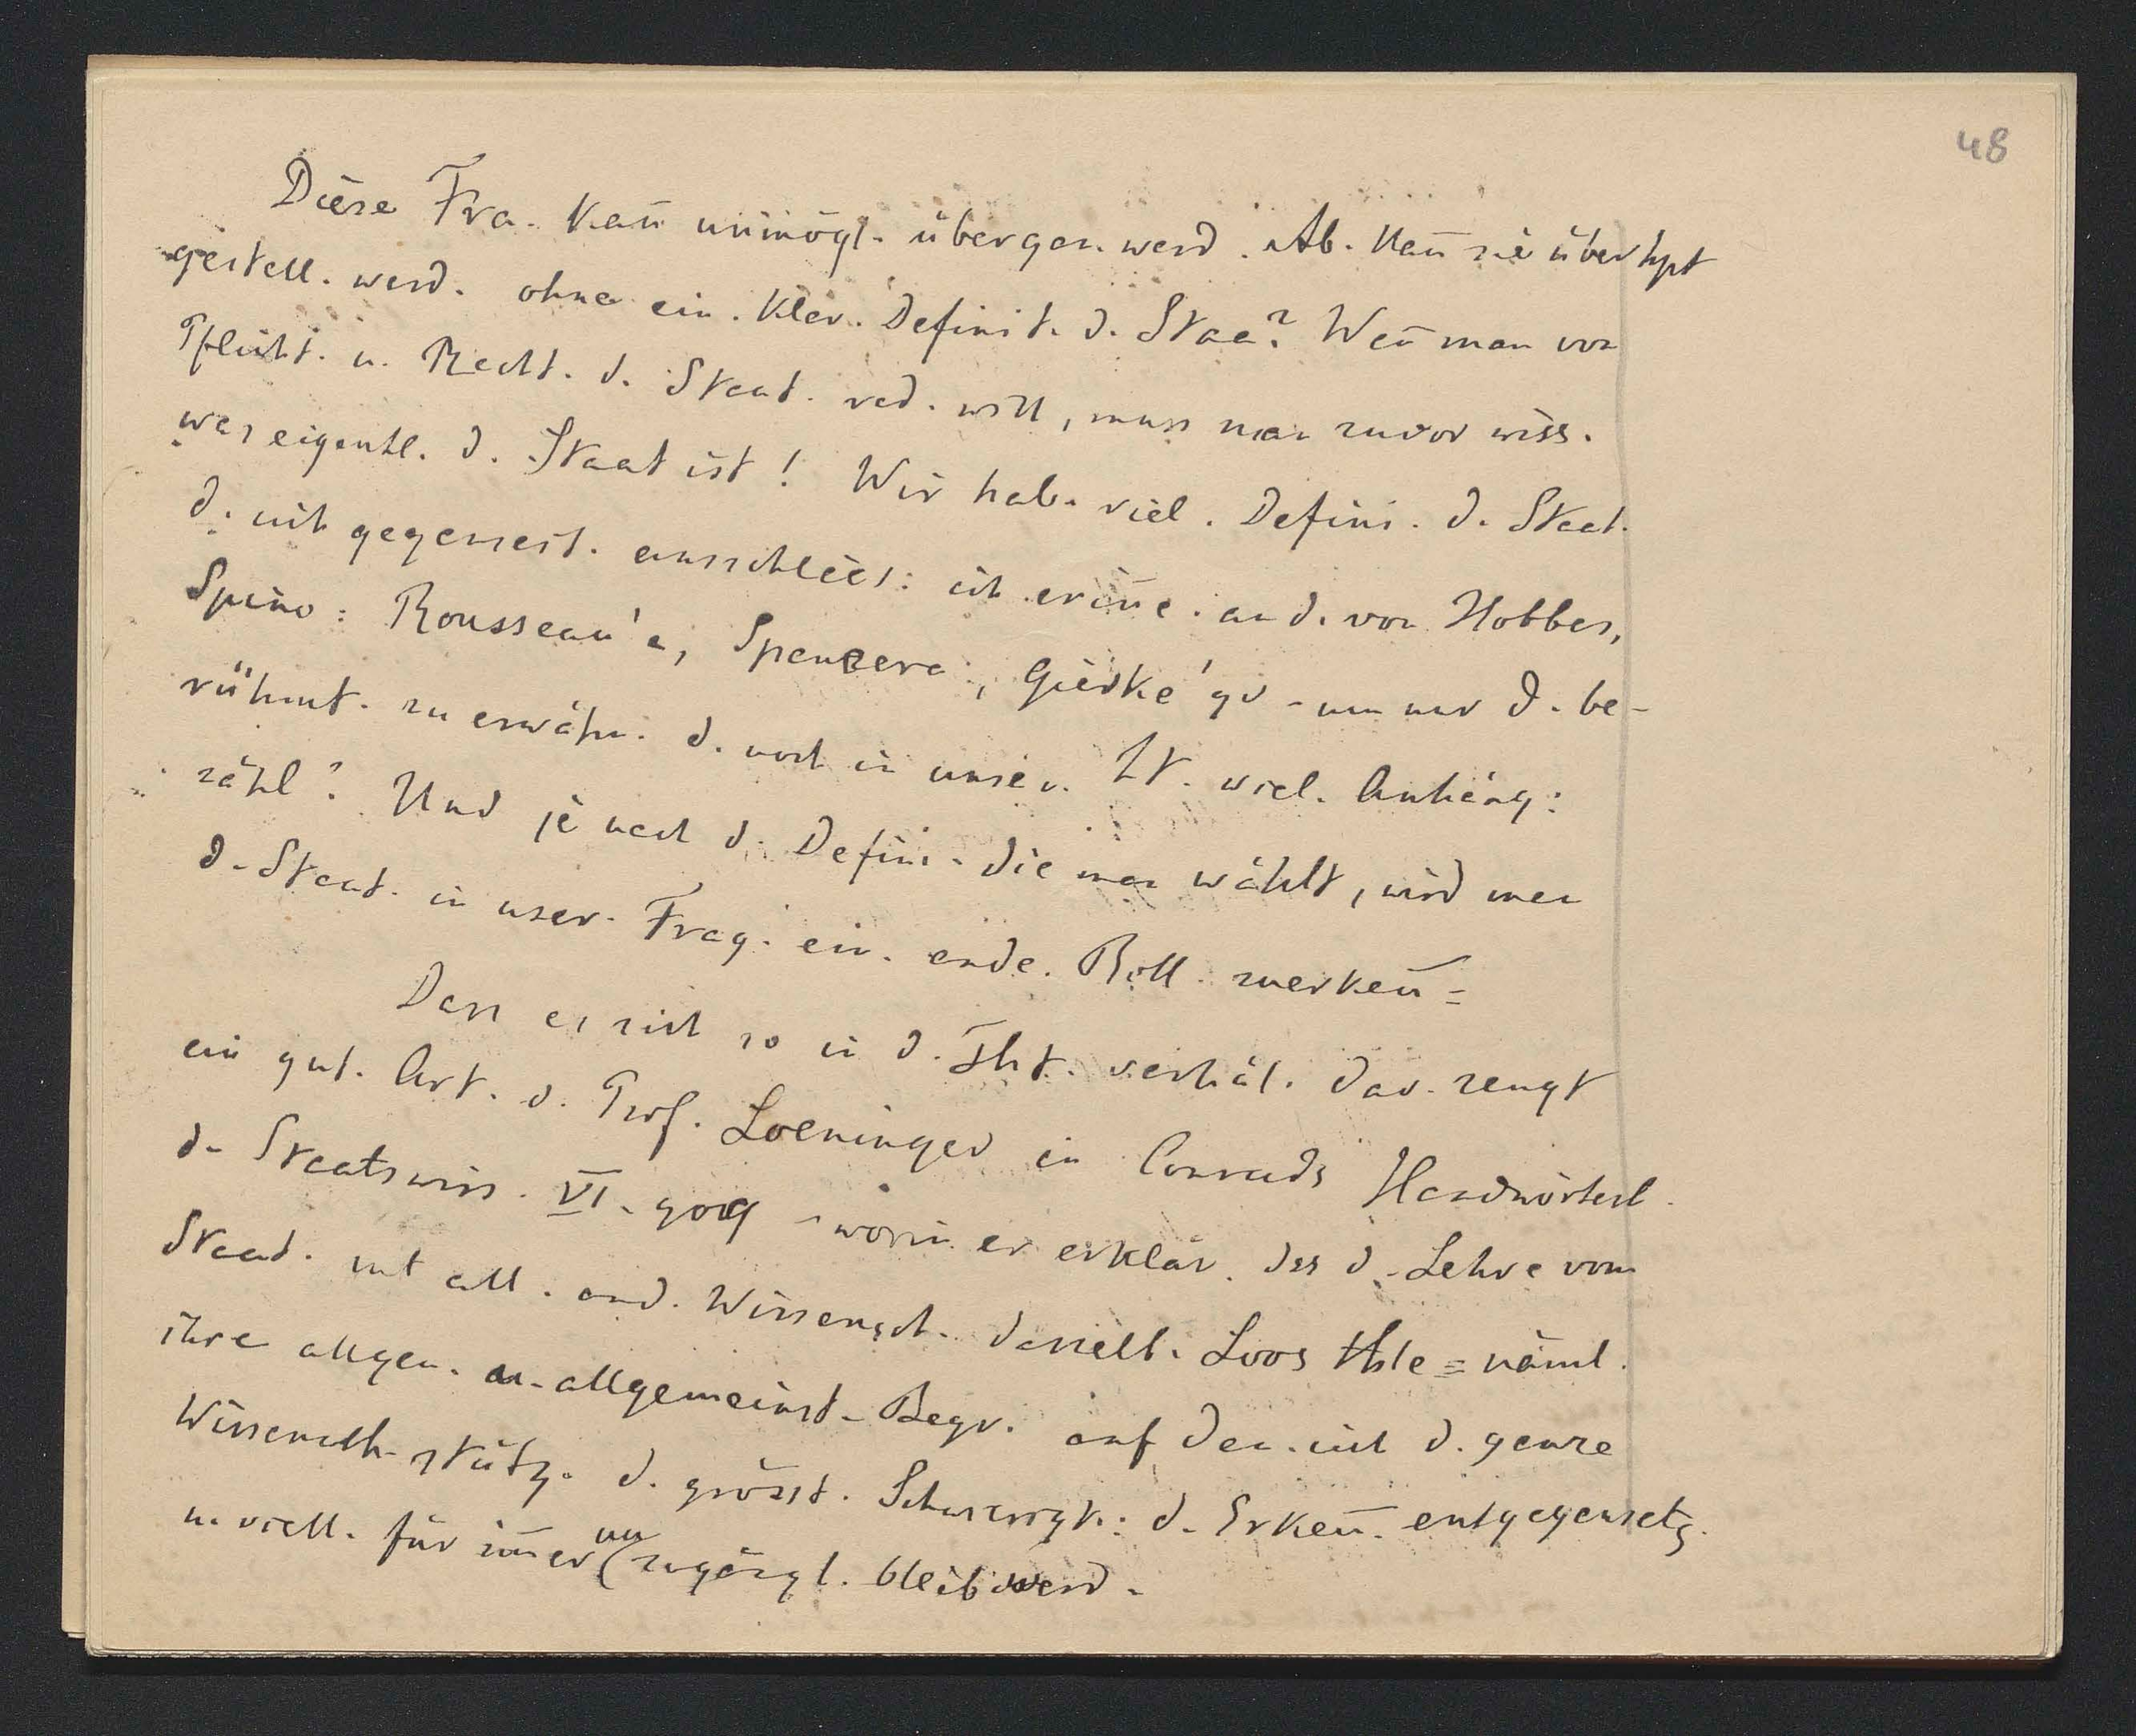 48
Diese Fra. kan̄ unmögl. übergan. werd. Ab. kan̄ sie überhpt
gestell. werd. ohne ein. klar. Definit. d. Staa? Wen̄ man von
Pflicht. u. Recht. d. Staat. red. will, muss man zuvor wiss.
was eigentl. d. Staat ist! Wir hab. viel. Defini. d. Staat.
d. sich gegenseit. ausschliess: ich erin̄e. an d. von Hobbes,
Spino: Rousseau's, Spencers, Gierke's - um nur d. be-
rühmt. zu erwähn. d. noch in unser. Zt. viel. Anhäng:
zähl? Und je nach d. Defini. die man wählt, wird man
d. Staat. in unser. Frag. ein. ande. Roll. zuerken̄=
Dass es sich so in d. Tht. verhäl. dav. zeugt
ein gut. Art. d. Prof. Loeninger in Conrads Handwörterb.
d. Staatswiss. VI. 909 - worin er erklär. dss d. Lehre vom
Staat. mit all. and. Wissensch. dasselb. Loos thle = näml.
ihre allgem. u. allgemeinst. Begr. auf den. sich d. ganze
Wissensch. stütz. d. grösst. Schwierigk: d. Erken̄. entgegensetz.
u. viell. für im̄er un
zugängl. bleib werd.